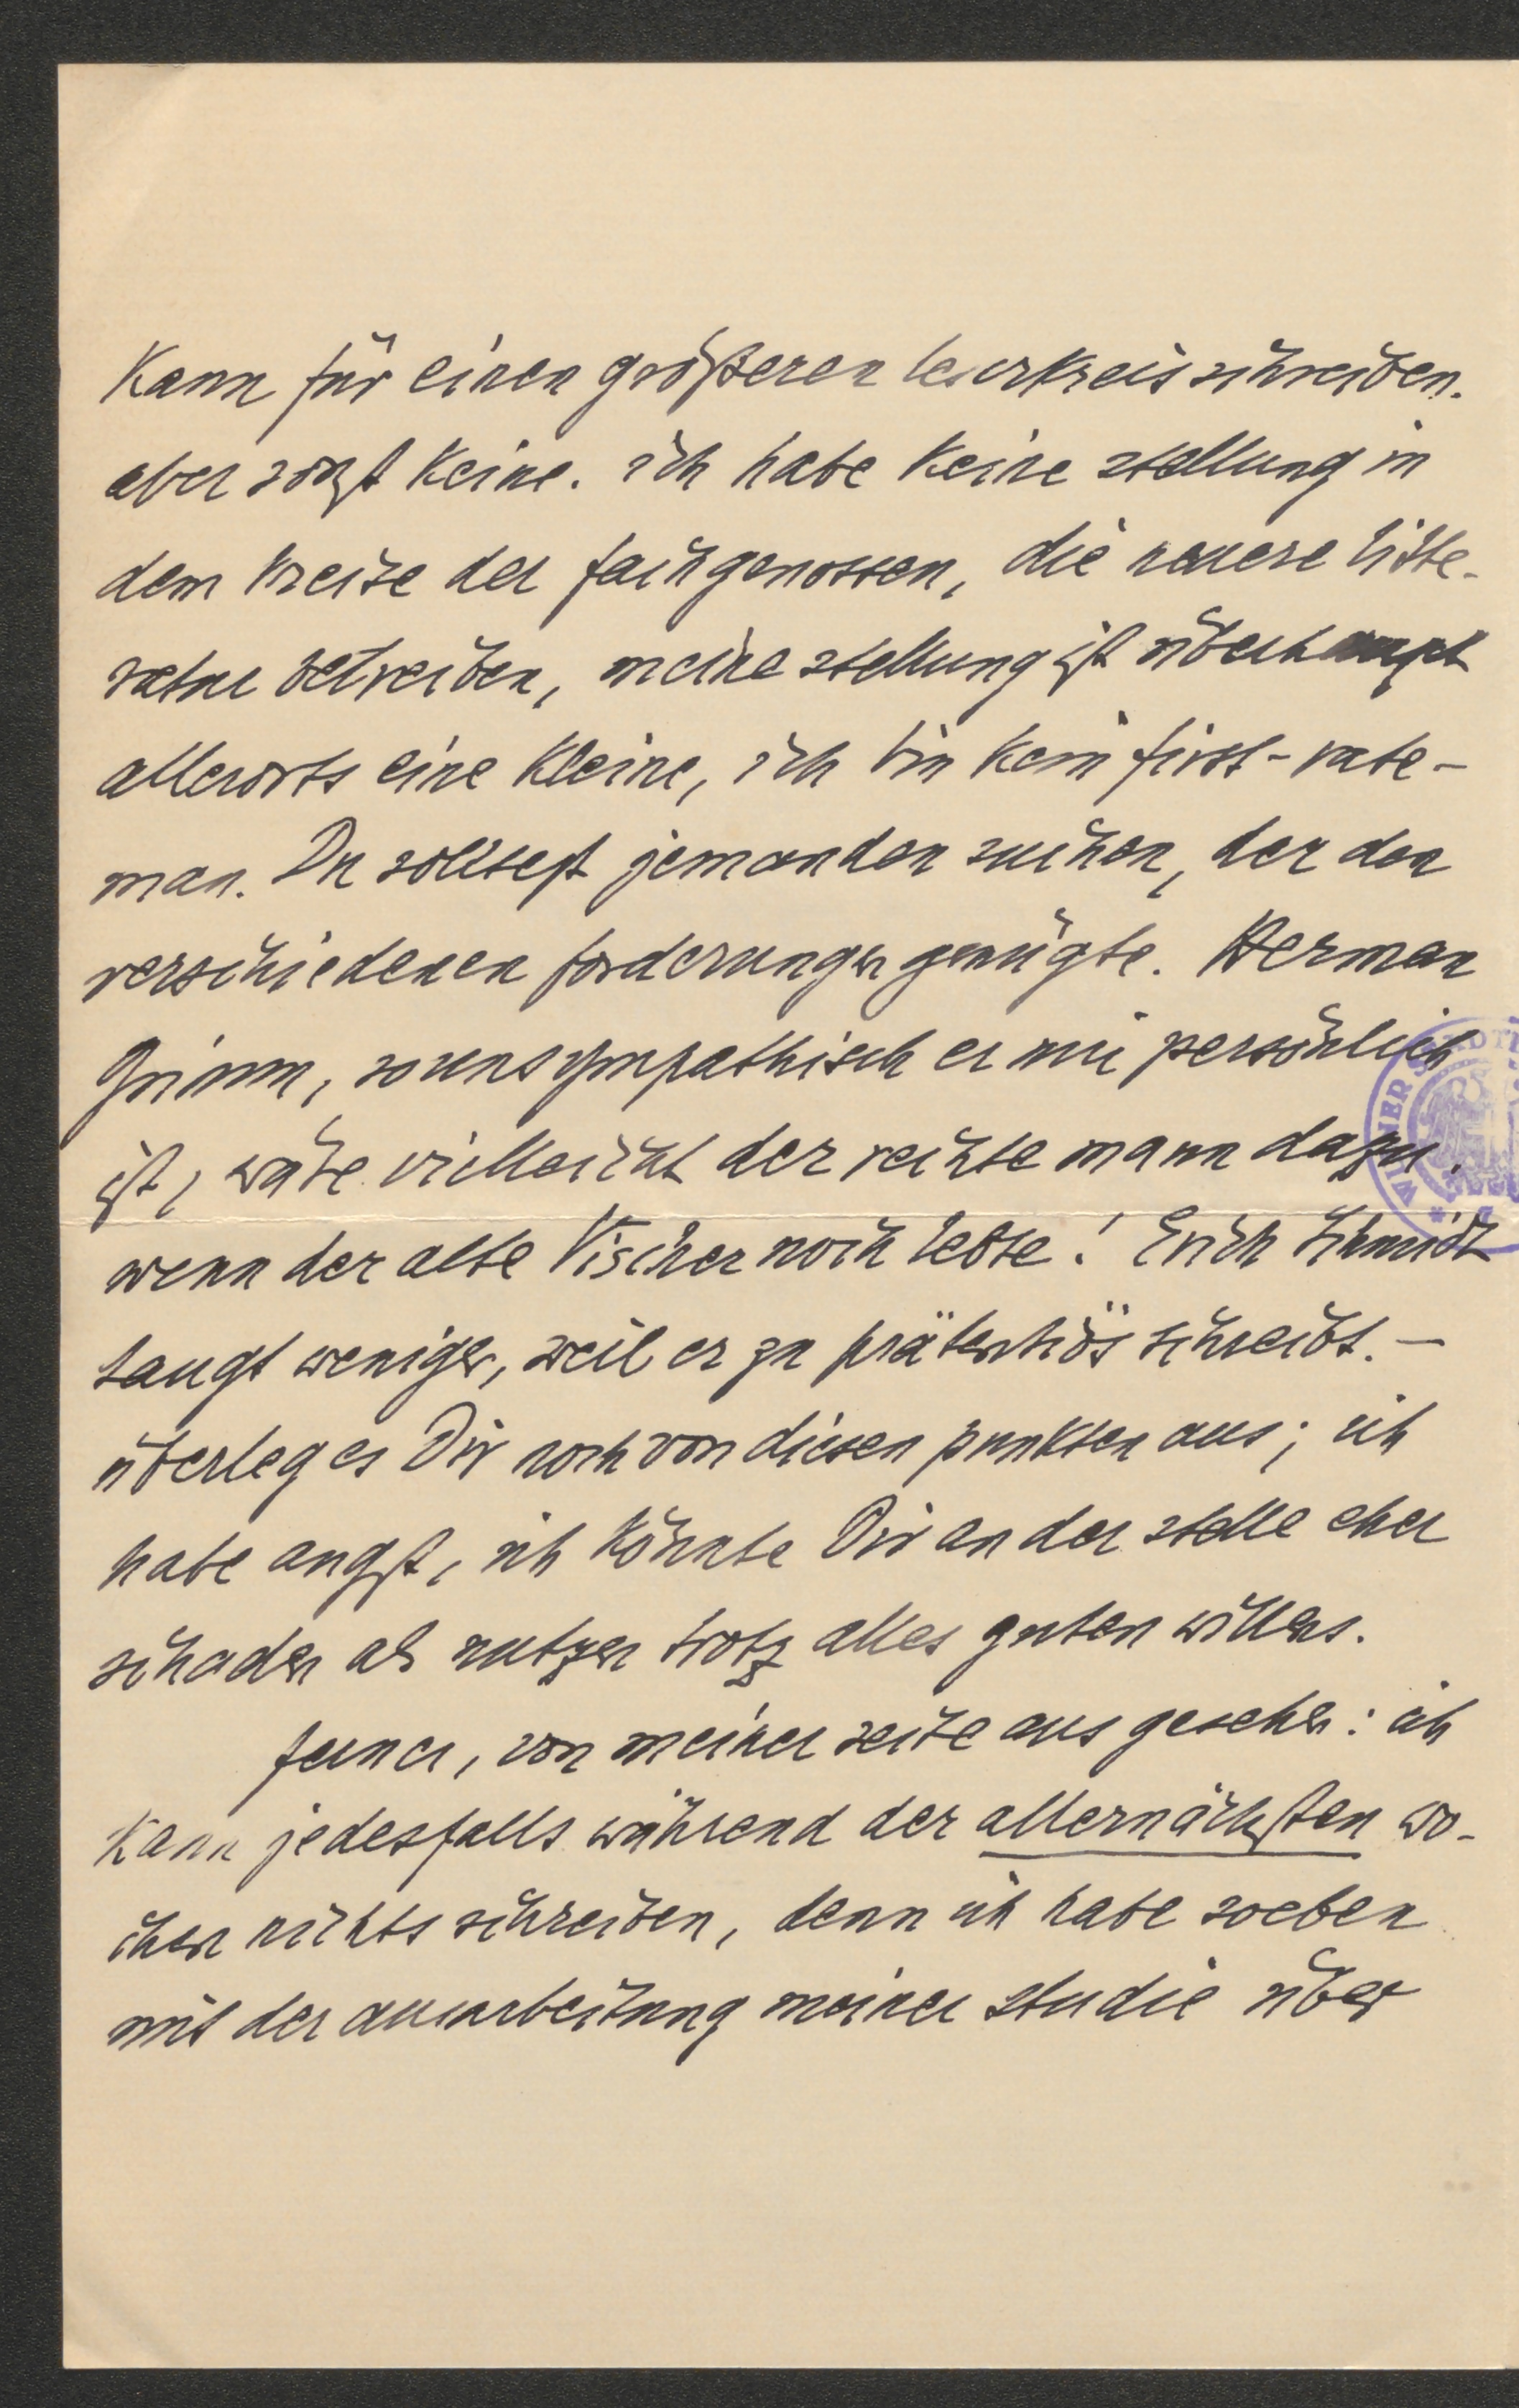 kann für einen größeren leserkreis schreiben.
aber sonst keine. ich habe keine stellung in
dem kreise der fachgenossen, die neuere litte-
ratur betreiben, meine stellung ist überhaupt
allerorts eine kleine, ich bin kein first-rate-
man. Du solltest jemanden suchen, der den
verschiedenen forderungen genügte. Herman
Grimm, so unsympathisch er mir persönlich
ist, wäre vielleicht der rechte mann dazu.
wenn der alte Vischer noch lebte! Erich Schmidt
taugt weniger, weil er zu prätentiös schreibt. –
überleg es Dir noch von diesen punkten aus; ich
habe angst, ich könnte Dir an der stelle eher
schaden als nutzen trotz alles guten willens.
ferner, von meiner seite aus gesehen: ich
kann jedesfalls während der allernächsten wo-
chen nichts schreiben, denn ich habe soeben
mit der ausarbeitung meiner studie über